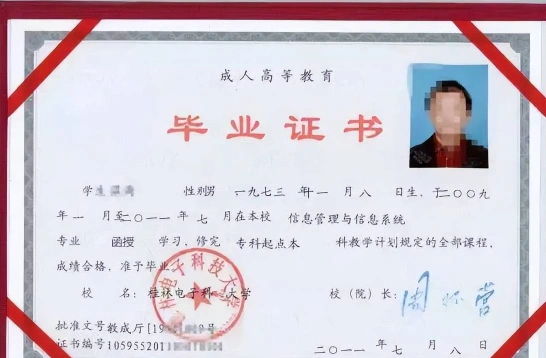 成人高等教育
毕业证书
学生 性别男 一九七三年十一月八日生，于二〇〇九
年一月至二〇一一年七月在本校 信息管理与信息系统
专业 函授 学习，修完 专科起点本 科教学计划规定的全部课程，
成绩合格，准予毕业
校 名：桂林电子科 大学 校（院）长：周怀营
批准文号教成厅[19 号
证书编号105955201
二〇一一年七月八日
桂林电子科技大学